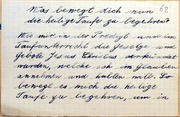 Was bewegt dich nun
die heilige Taufe zu begehren?
Wie mir in der Predigt und im
Taufunterricht die Gesetze und
Gebote Jesus Christus verkündiget
wurden, welche ich im Glauben
annehmen und halten will. So
bewegt es mich die heilige
Taufe zu begehren, um in